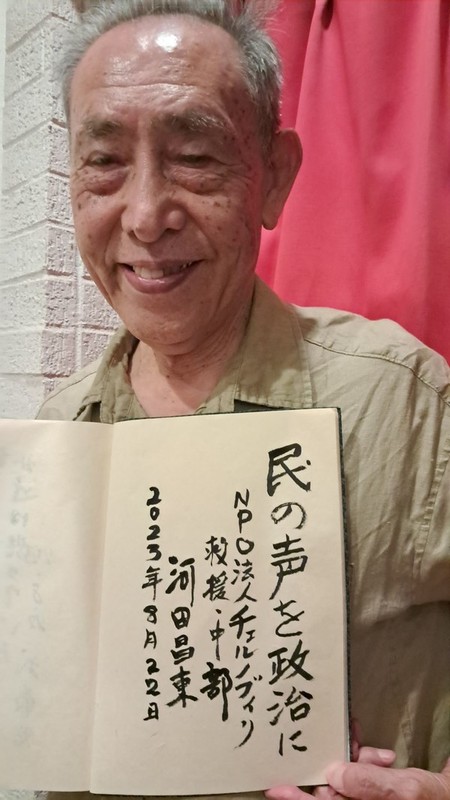 民の声を政治に
NPO法人チェルノブイリ
救援・中部
河田昌東
2023年8月22日